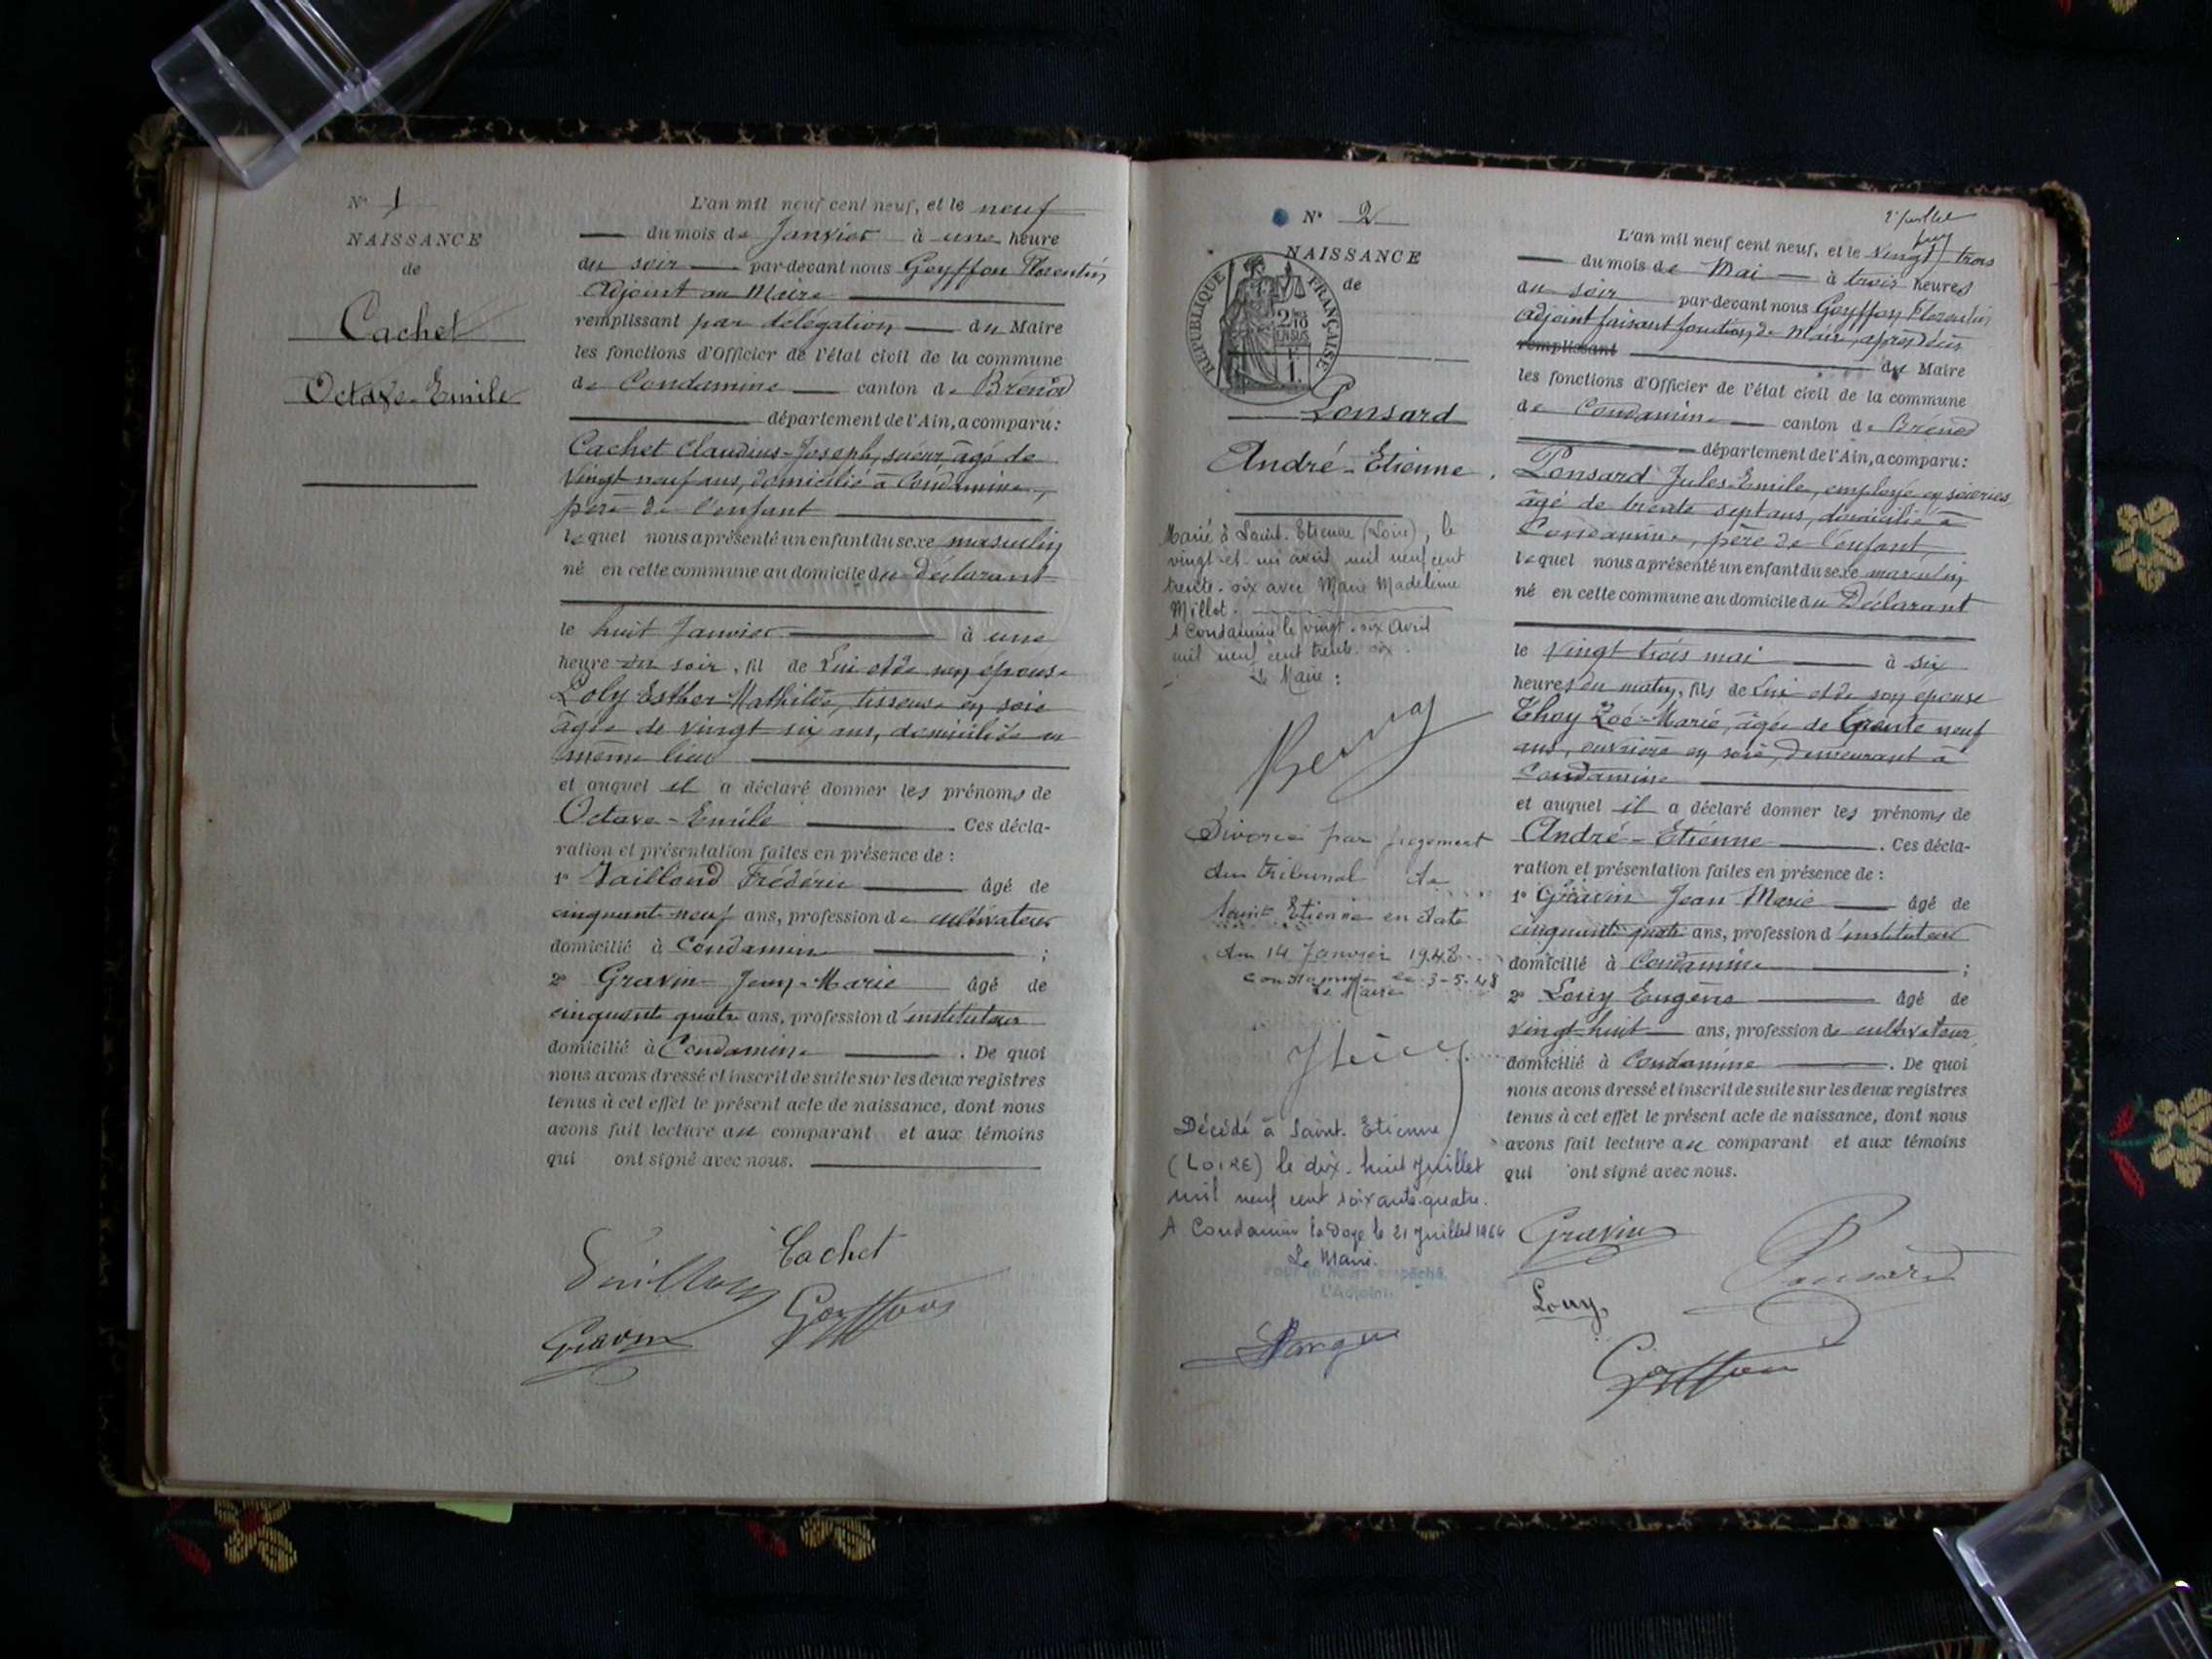 N° 1
NAISSANCE
de
Cachet
Octave-Emile
L'an mil neuf cent neuf, et le neuf
du mois de Janvier à une heure
du soir par-devant nous Goyffon Florentin,
Adjoint au Maire
remplissant par délégation du Maire
les fonctions d'Officier de l'état civil de la commune
de Condamine canton de Brénod
département de l'Ain, a comparu:
Cachet Claudius-Joseph, scieur âgé de
vingt neuf ans, domicilié à Condamine,
père de l'enfant
lequel nous a présenté un enfant du sexe masculin
né en cette commune au domicile du Déclarant
le huit Janvier à une
heure du soir, fil de Lui et de son épouse
Loly Esther Mathilde, tisseuse en soie
âgée de vingt six ans, domiciliée au
même lieu
et auquel il a déclaré donner les prénoms de
Octave-Emile Ces décla-
ration et présentation faites en présence de :
1° Vailloud Frédéric âgé de
cinquante-neuf ans, profession de cultivateur
domicilié à Condamine ;
2° Gravin Jean-Marie âgé de
cinquante quatre ans, profession d'instituteur
domicilié à Condamine . De quoi
nous avons dressé et inscrit de suite sur les deux registres
tenus à cet effet le présent acte de naissance, dont nous
avons fait lecture au comparant et aux témoins
qui ont signé avec nous.
Cachet
Vailloud
Goyffon
Gravin
N° 2
NAISSANCE
de
RÉPUBLIQUE FRANÇAISE
2/10 EN SUS
1 F.
Ponsard
André-Etienne.
Marié à Saint-Etienne (Loire), le
vingt-et-un avril mil neuf cent
trente-six avec Marie Madeleine
Millet.
A Condamine le vingt-six Avril
mil neuf cent trente-six.
Le Maire :
Divorcé par jugement
du tribunal de
Saint Etienne en date
du 14 Janvier 1948
Condamine le 3-5-48
Le Maire
Décédé à Saint-Etienne
(LOIRE) le dix-huit Juillet
mil neuf cent soixante-quatre.
A Condamine la Doye le 21 Juillet 1964
Le Maire.
Pour le Maire empêché,
L'Adjoint.
L'an mil neuf cent neuf, et le vingt trois
du mois de Mai à trois heures
du soir par-devant nous Goyffon Florentin,
Adjoint faisant fonction de Maire, après décès
remplissant du Maire
les fonctions d'Officier de l'état civil de la commune
de Condamine canton de Brénod
département de l'Ain, a comparu:
Ponsard Jules-Emile, employé en soieries,
âgé de trente sept ans, domicilié à
Condamine, père de l'enfant,
lequel nous a présenté un enfant du sexe masculin
né en cette commune au domicile du Déclarant
le vingt trois mai à six
heures du matin, fils de Lui et de son épouse
Thoy Zoé-Marie, âgée de trente neuf
ans, ouvrière en soie, demeurant à
Condamine
et auquel il a déclaré donner les prénoms de
André-Etienne . Ces décla-
ration et présentation faites en présence de :
1° Gravin Jean Marie âgé de
cinquante quatre ans, profession d'instituteur
domicilié à Condamine ;
2° Louy Eugène âgé de
vingt-huit ans, profession de cultivateur
domicilié à Condamine . De quoi
nous avons dressé et inscrit de suite sur les deux registres
tenus à cet effet le présent acte de naissance, dont nous
avons fait lecture au comparant et aux témoins
qui ont signé avec nous.
Gravin
Ponsard
Louy
Goyffon